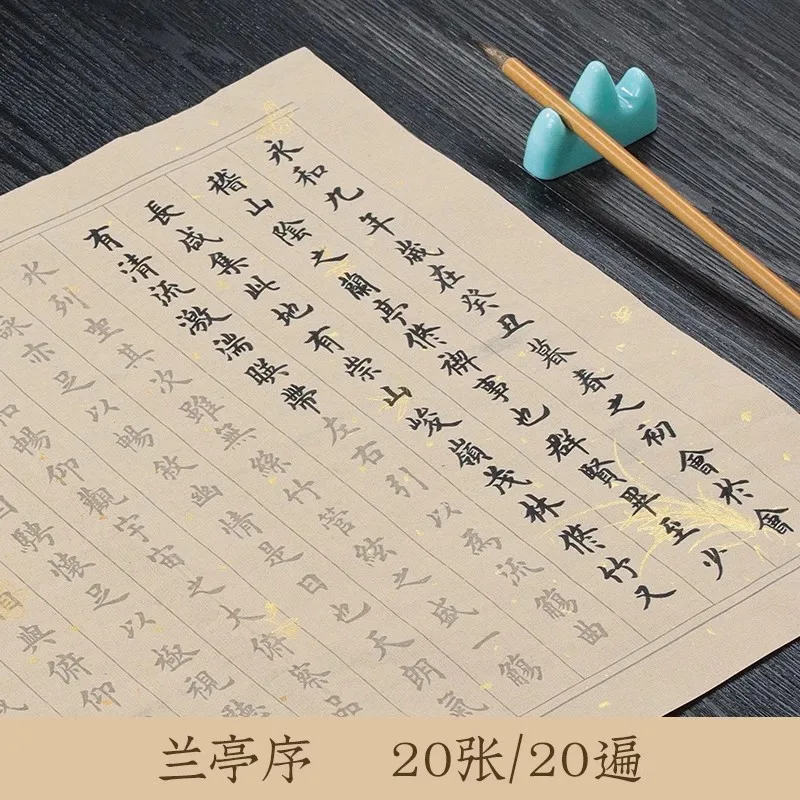 永和九年歲在癸丑暮春之初會於會
稽山陰之蘭亭修禊事也群賢畢至少
長咸集此地有崇山峻嶺茂林修竹又
有清流激湍暎帶左右引以為流觴曲
水列坐其次雖無絲竹管絃之盛一觴
詠亦足以暢敘幽情是日也天朗氣
和暢仰觀宇宙之大俯察品
目騁懷足以極視聽
相與俯仰
兰亭序 20张/20遍